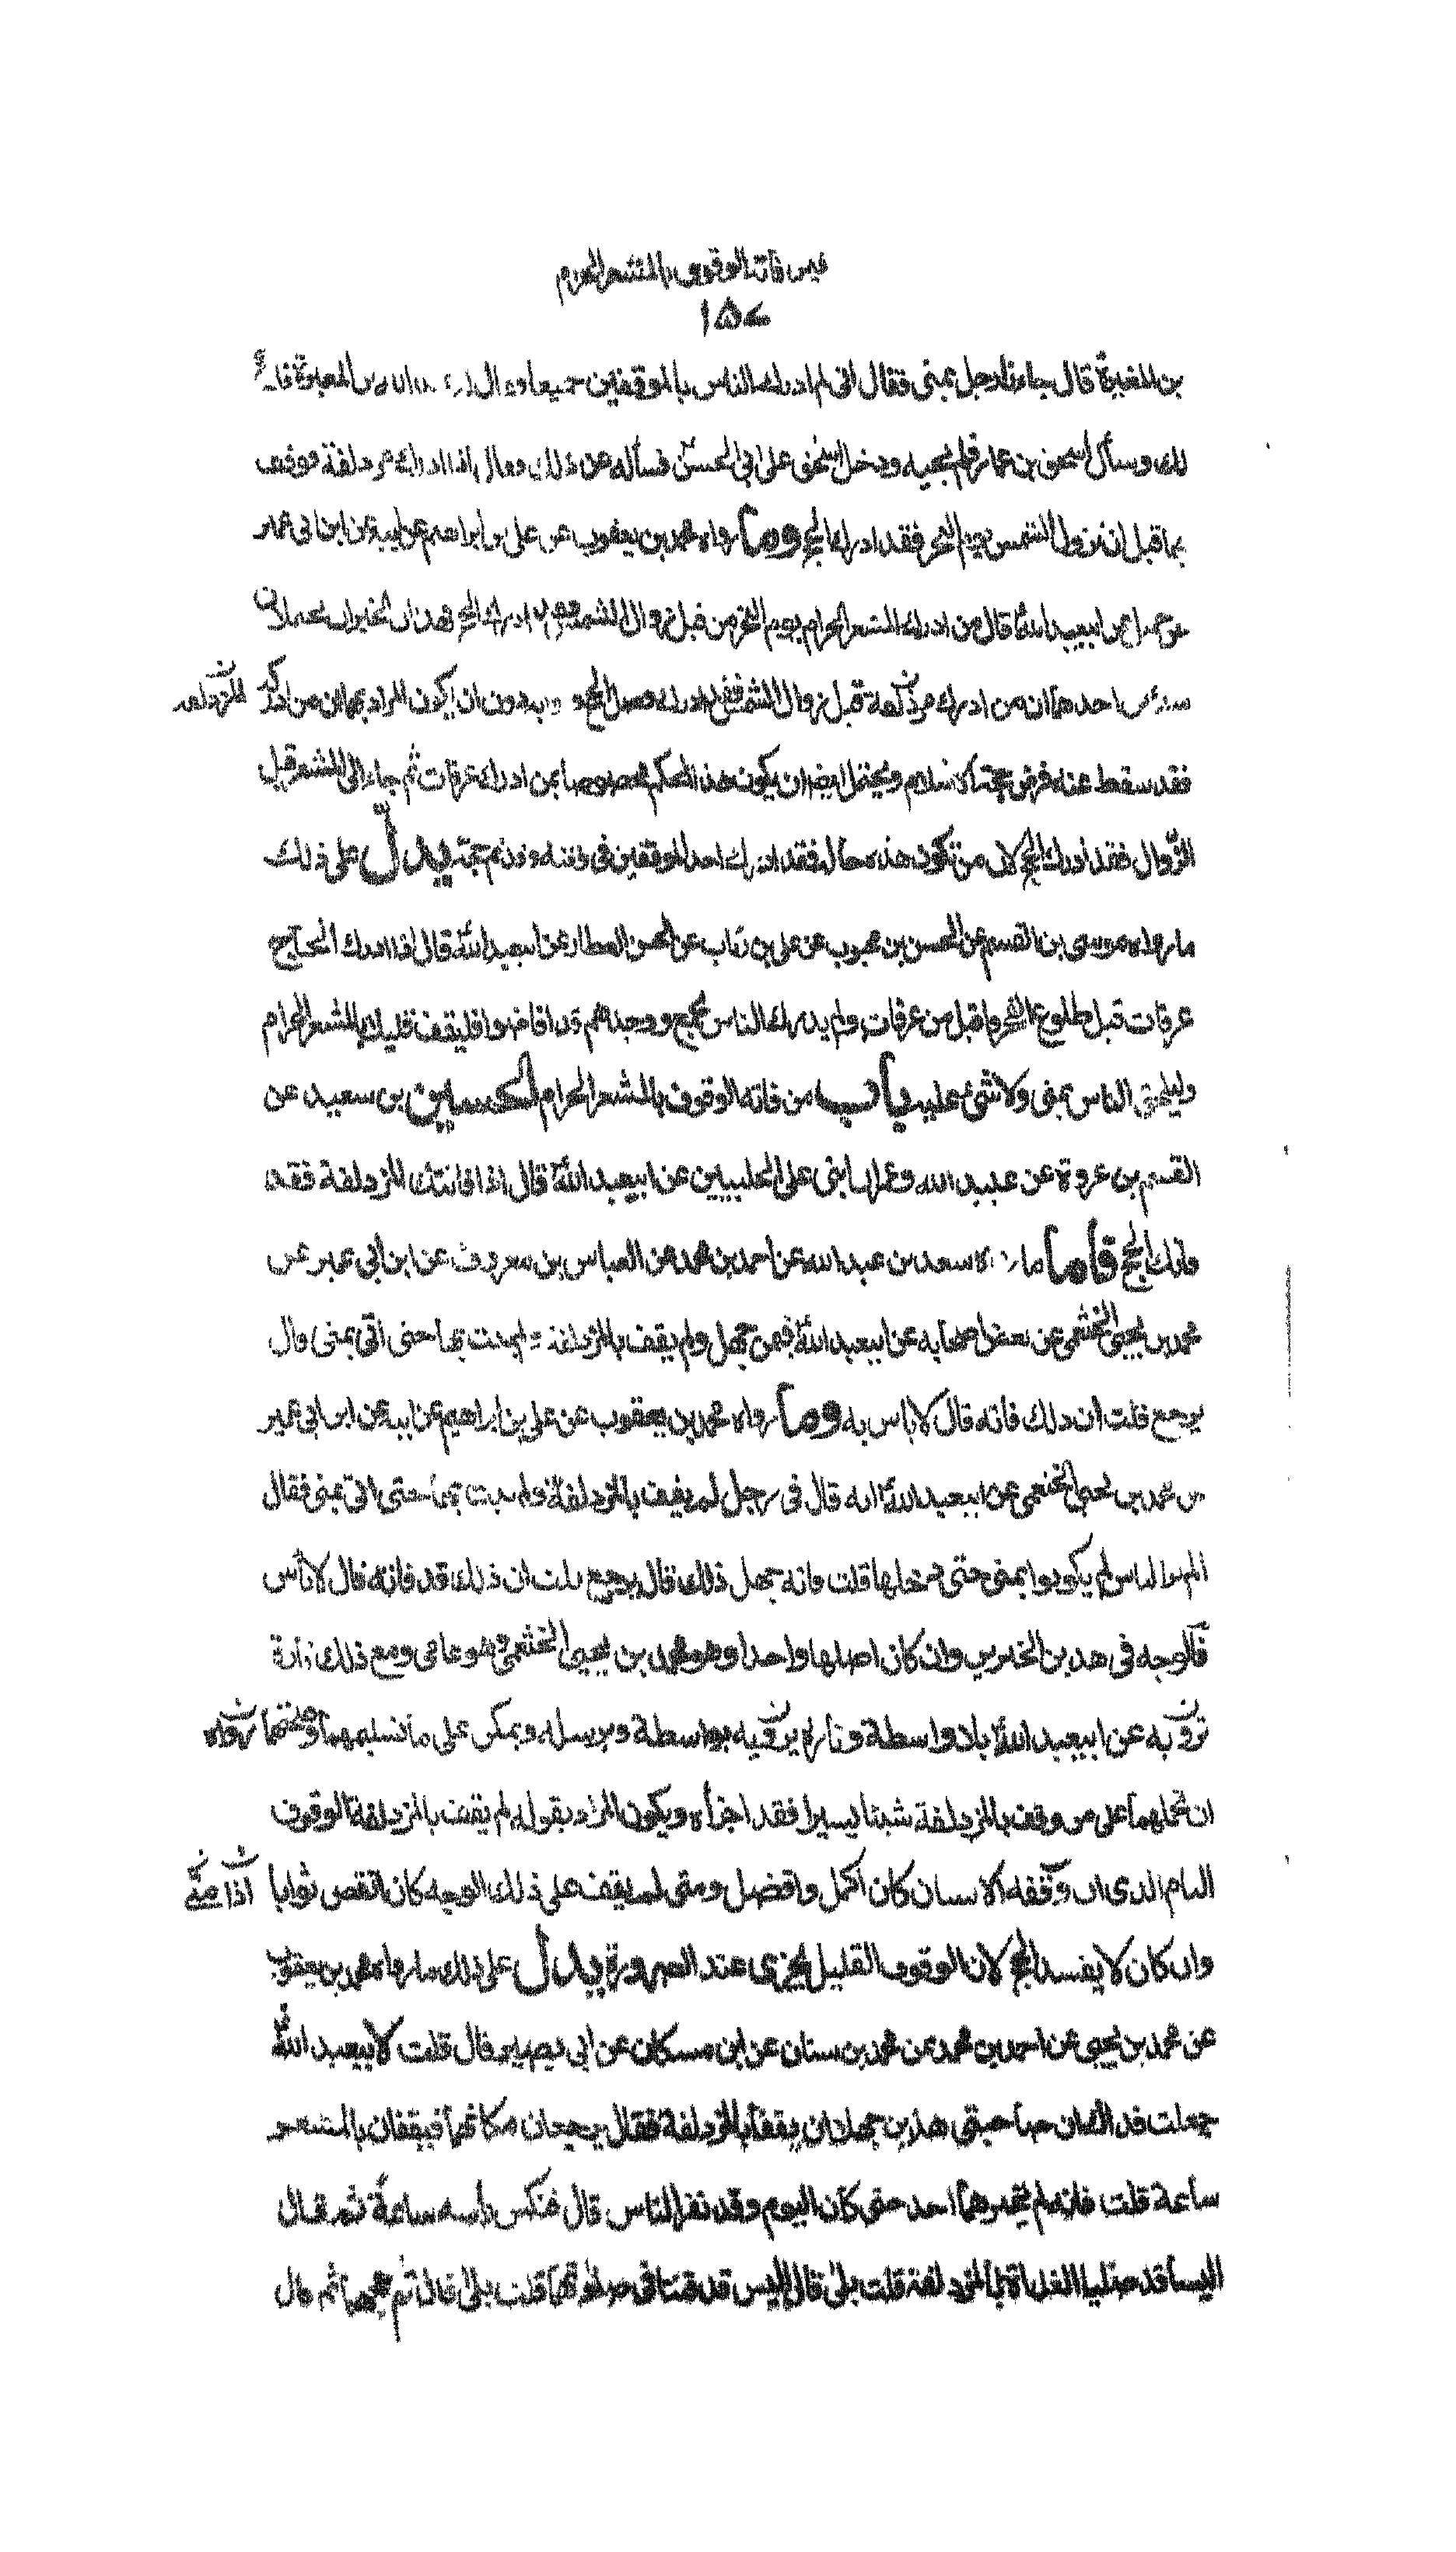 فيمن فاته الوقوف بالمشعر الحرام
١٥٧
بن المغيرة قال جاءنا رجل بمنى فقال انى لم ادرك الناس بالموقفين جميعا فقال له عبد الله بن المغيرة فلا حج
لك وسأل اسحق بن عمار فلم يجبه ودخل اسحق على ابى الحسن فسأله عن ذلك فقال اذا ادرك مزدلفة فوقف
بها قبل ان تزول الشمس يوم النحر فقد ادرك الحج وما رواه محمد بن يعقوب عن على بن ابراهيم عن ابيه عن ابن ابى عمير
عن جميل عن ابيعبد الله قال من ادرك المشعر الحرام يوم النحر من قبل زوال الشمس فقد ادرك الحج فهذان الخبران يحتملان
احدهما ان من ادرك مزدلفة قبل زوال الشمس فقد ادرك فضل الحج و ان يكون المراد بهما ان من ادرك المزدلفة
فقد سقط عنه فرض حجة الاسلام ويحتمل ايضا ان يكون هذا الحكم مخصوصا بمن ادرك عرفات ثم جاء الى المشعر قبل
الزوال فقد ادرك الحج لان من تكون هذه حاله فقد ادرك احد الموقفين فى وقته وقد تم حجه يدل على ذلك
ما رواه موسى بن القسم عن الحسن بن محبوب عن على بن رئاب عن الحسن العطار عن ابيعبد الله قال اذا ادرك الحاج
عرفات قبل طلوع الفجر واقبل من عرفات ولم يدرك الناس بجمع ووجدهم قد افاضوا فليقف قليلا بالمشعر الحرام
وليلحق الناس بمنى ولا شئ عليه باب من فاته الوقوف بالمشعر الحرام الحسين بن سعيد عن
القسم بن عروة عن عبيد الله وعمران ابنى على الحلبيين عن ابيعبد الله قال اذا فاتتك المزدلفة فقد
فاتك الحج فأما ما رواه سعد بن عبد الله عن احمد بن محمد عن العباس بن معروف عن ابن ابى عمير عن
محمد بن يحيى الخثعمى عن بعض اصحابه عن ابيعبد الله فيمن جهل ولم يقف بالمزدلفة ولم يبت بها حتى اتى بمنى قال
يرجع قلت ان ذلك فاته قال لا باس به وما رواه محمد بن يعقوب عن على بن ابراهيم عن ابيه عن ابن ابى عمير
عن محمد بن يحيى الخثعمى عن ابيعبد الله انه قال فى رجل لم يقف بالمزدلفة ولم يبت بها حتى اتى بمنى فقال
الم ير الناس لم يكونوا بمنى حتى دخلها قلت فانه جهل ذلك قال يرجع قلت ان ذلك قد فاته قال لا بأس
فالوجه فى هذين الخبرين وان كان اصلهما واحدا وهو محمد بن يحيى الخثعمى وهو عامى ومع ذلك تارة
يرويه عن ابيعبد الله بلا واسطة وتارة يرويه بواسطة ويرسله ويمكن على ما فيهما وصحتهما
ان نحملهما على من وقف بالمزدلفة شيئا يسيرا فقد اجزأه ويكون المراد بقوله لم يقف بالمزدلفة الوقوف
التام الذى اذا وقفه الانسان كان اكمل وافضل ومتى لم يقف على ذلك الوجه كان انقص ثوابا
وان كان لا يفسد الحج لان الوقوف القليل يجزى عند الضرورة يدل على ذلك ما رواه محمد بن يعقوب
عن محمد بن يحيى عن احمد بن محمد عن محمد بن سنان عن ابن مسكان عن ابى بصير قال قلت لابيعبد الله
جعلت فداك ان صاحبتى هذين جهلا ان يقفا بالمزدلفة فقال يرجعان مكانهما فيقفان بالمشعر
ساعة قلت فانه لم يخبرهما احد حتى كان اليوم وقد نفر الناس قال فنكس رأسه ساعة ثم قال
اليسا قد صليا الغداة بالمزدلفة قلت بلى قال اليس قد قنتا فى صلوتهما قلت بلى قال تم حجهما ثم قال